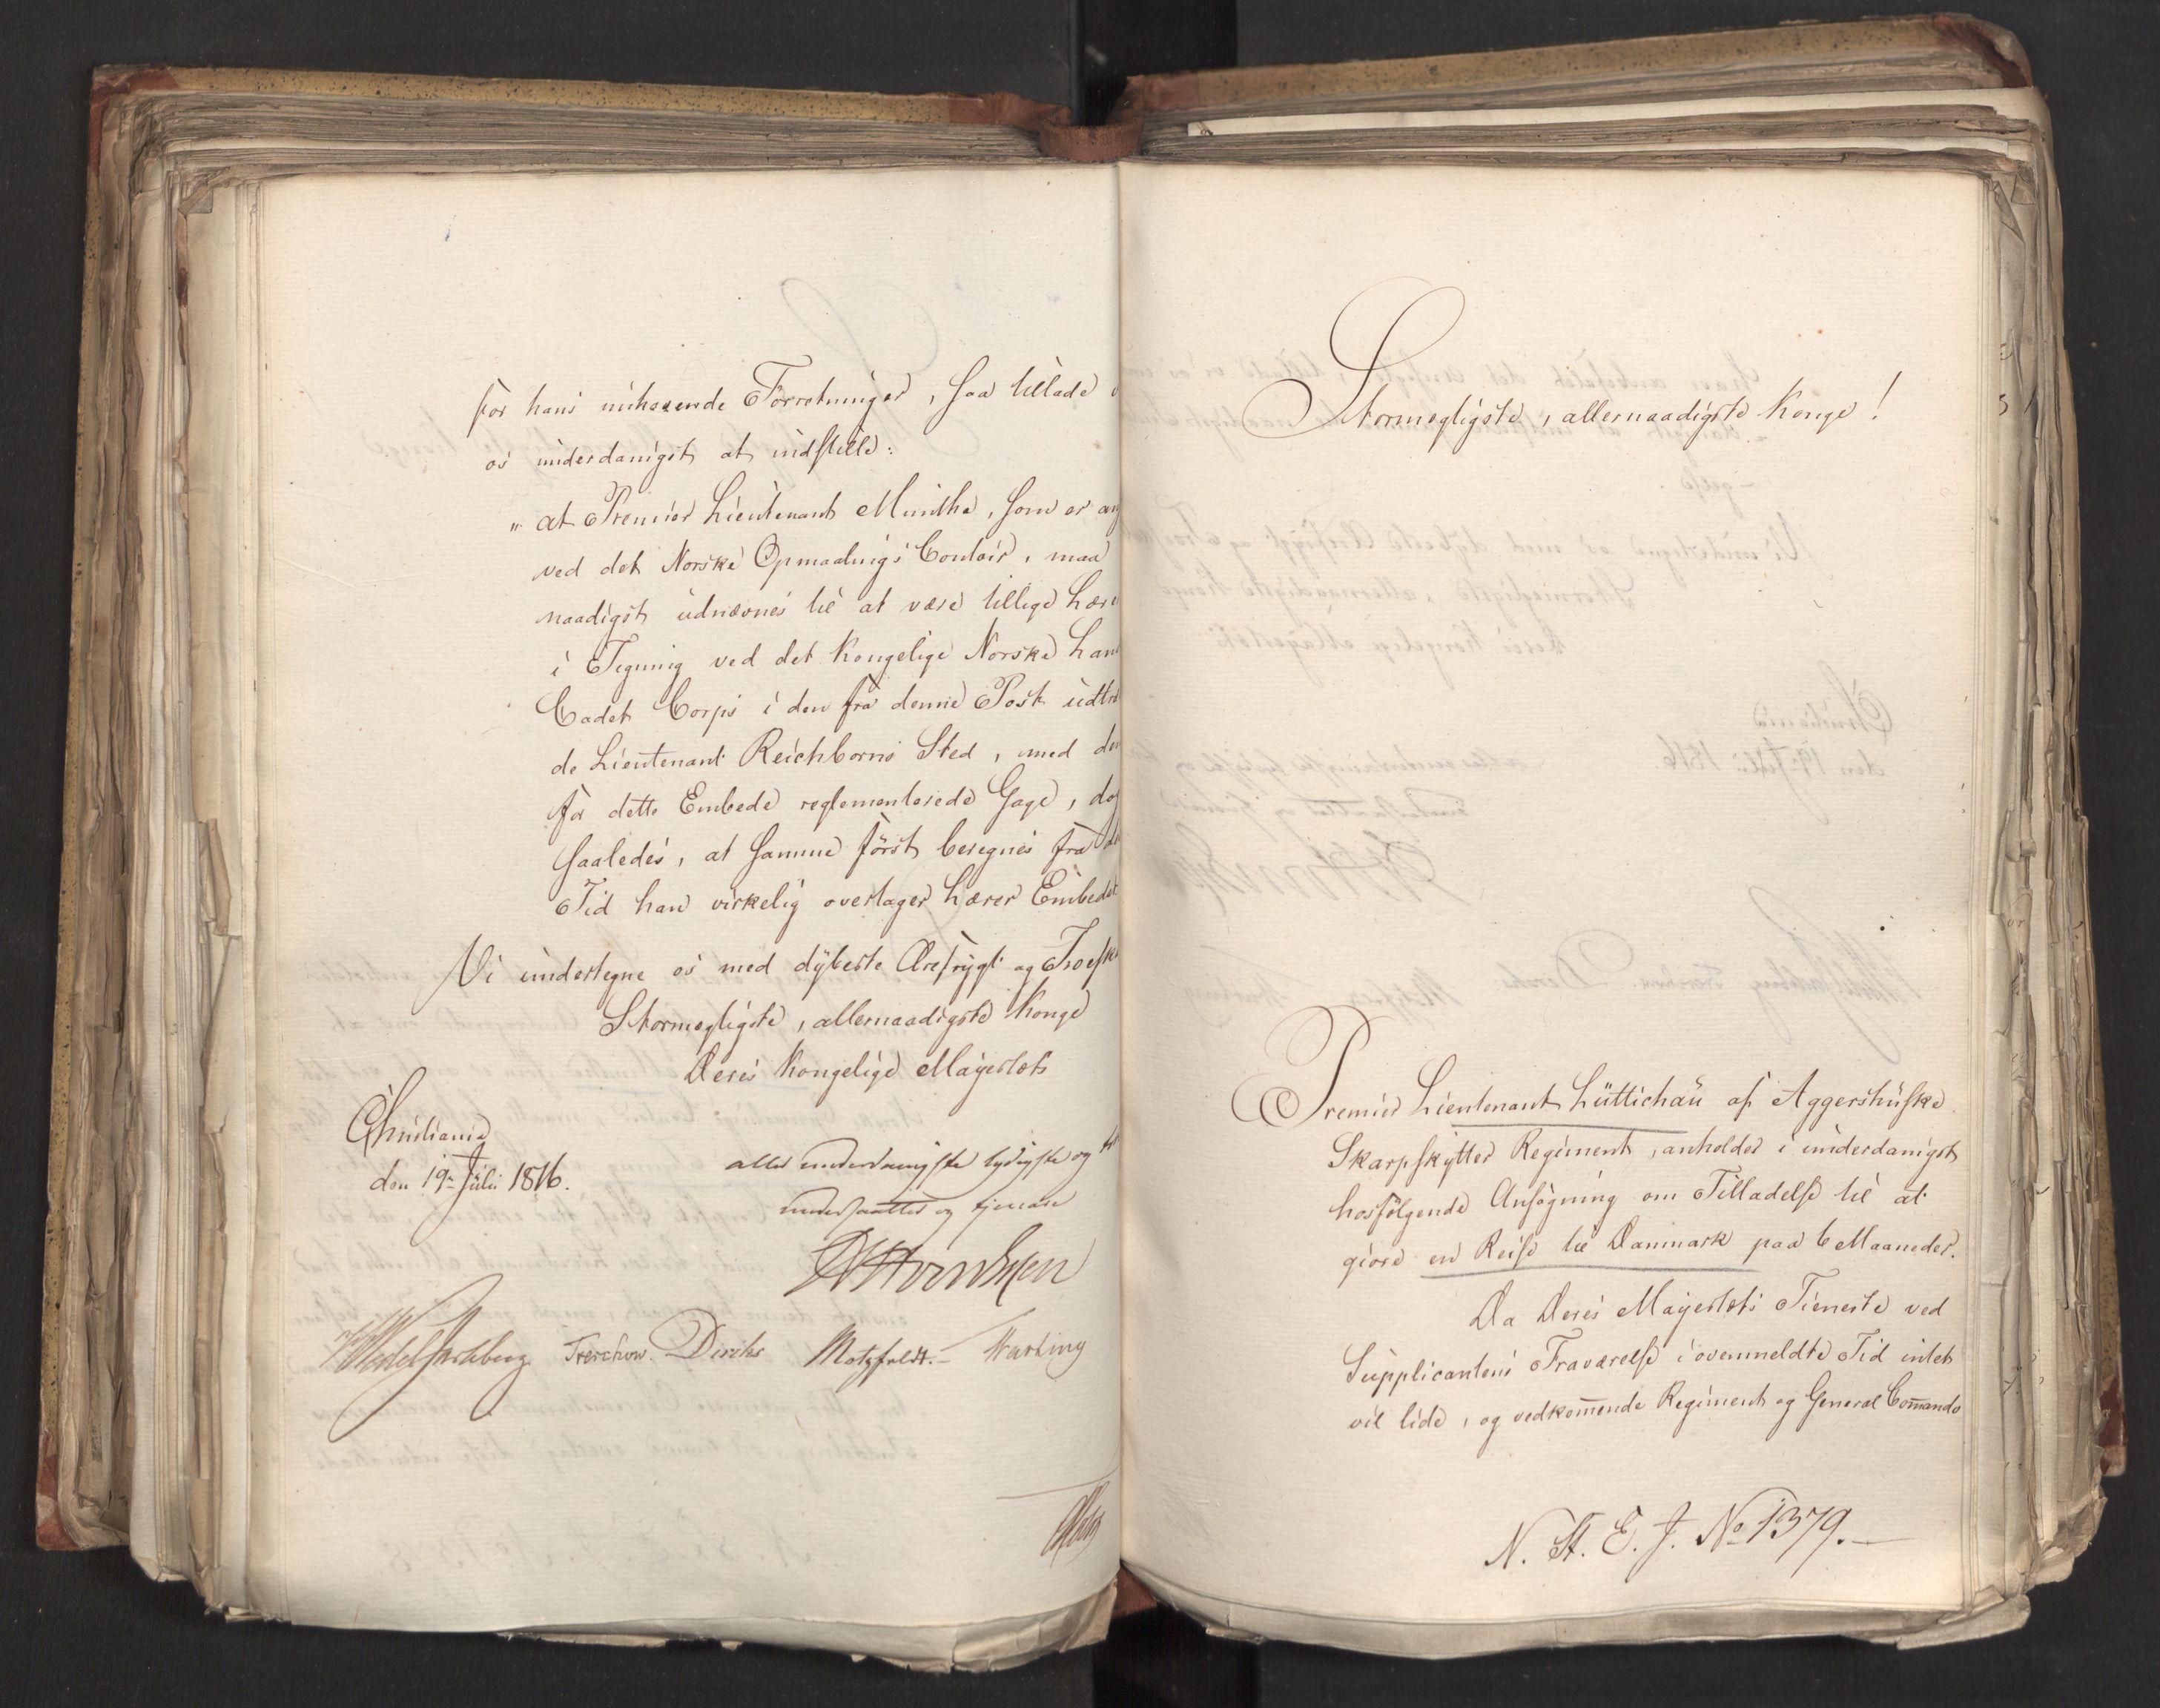 for hans nuhavende Forretninger, saa tillade
os underdanigst at indstille:
„ at Premier Lieutenant Munthe, som er an
ved det Norske Opmaalings Contoir, maa
naadigst udnævnes til at være tillige Lære
i Tegning ved det Kongelige Norske Land
Cadet Corps i den fra denne Post udtræ
de Lieutenant Reichborns Sted, med den
for dette Embede reglementerede Gage, dog
saaledes, at samme först beregnes fra
Tid han virkelig overtager Lærer Embedet
Vi undertegne os med dÿbeste Ærefrygt og Troesk
Stormegtigste, allernaadigste Konge
Deres Kongelige Mayestæts
Christiania
den 19de Julii 1816.
allerunderdanigste lydigste og
undersaatter og tjenere
Wedel Jarlsberg Treschow. Diriks Motzfeldt.
Stormegtigste, allernaadigste Konge!
Premier Lieutenant Lüttichau af Aggershuuske
Skarpskÿtter Regiment, anholder i underdanigst
hosfölgende Ansögning om Tilladelse til at
giöre en Reise til Danmark paa 6 Maaneder.
Da Deres Mayestæts Tieneste ved
Supplicantens Fraværelse i ovenmeldte Tid intet
vil lide, og vedkom̅ende Regiment og General Com̅ando
N. St. E. J. No 1379.